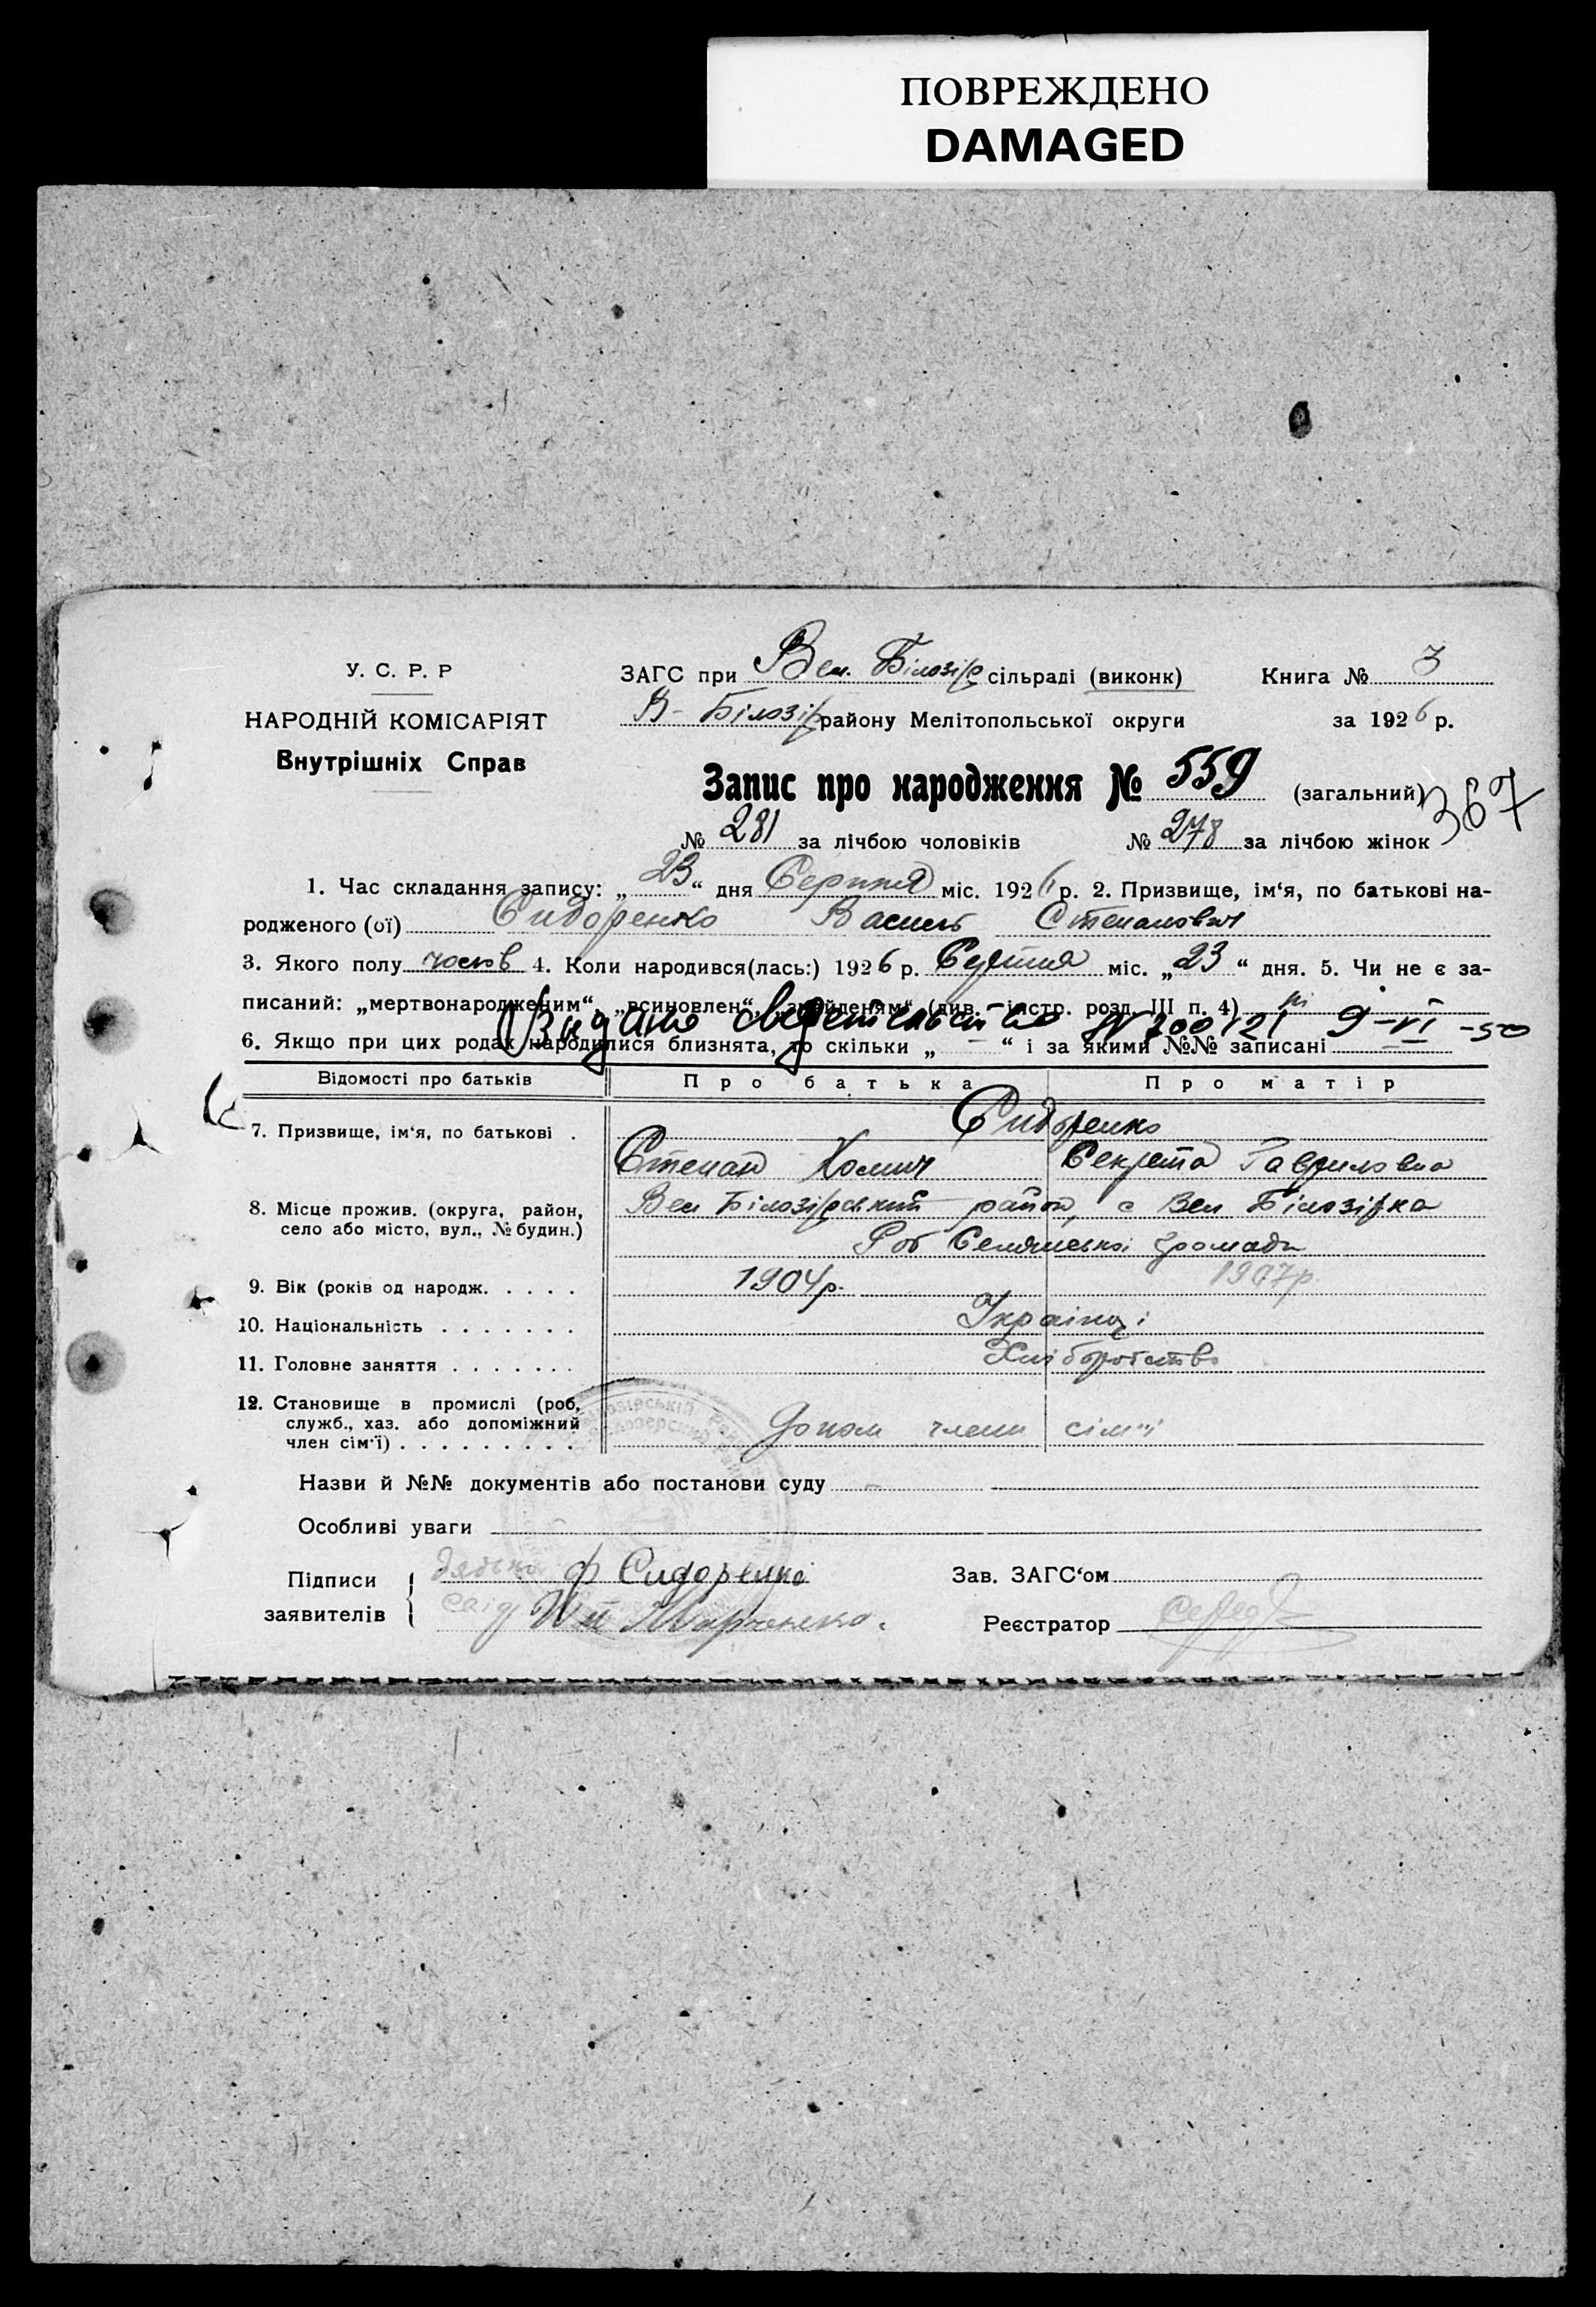 ПОВРЕЖДЕНО
DAMAGED
У. С. Р. Р
НАРОДНІЙ КОМІСАРІЯТ
Внутрішніх Справ
ЗАГС при Вел. Білозір сільраді (виконк) Книга № 3
В-Білозір району Мелітопольської округи за 1926 р.
Запис про народження № 559 (загальний) 367
№ 281 за лічбою чоловіків № 278 за лічбою жінок
1. Час складання запису: „23“ дня Серпня міс. 1926 р. 2. Призвище, ім‘я, по батькові на-
родженого (ої) Сидоренко Василь Степанович
3. Якого полу чолов 4. Коли народився(лась:) 1926 р. Серпня міс. „23“ дня. 5. Чи не є за-
писаний: „мертвонародженим“, „всиновлен“, „знайденям“ (див. інстр. розд. III п. 4) ні
Видано свидетельство № 200121 9-VI-50
6. Якщо при цих родах народилися близнята, то скільки „ — “ і за якими №№ записані
Відомості про батьків Про батька Про матір
7. Призвище, ім‘я, по батькові . Сидоренко
Степан Хомич Секрета Гавриловна
8. Місце прожив. (округа, район, село або місто, вул., № будин.) Вел Білозірський район, с Вел Білозірка
Селянської громади
9. Вік (років од народж. . . . . 1904р. 1907р.
10. Національність . . . . . . . Українці
11. Головне заняття . . . . . . . Хліборобство
12. Становище в промислі (роб,
служб., хаз. або допоміжний
член сім‘ї) . . . . . . . . . Допом члени сім'ї
Назви й №№ документів або постанови суду —
Особливі уваги
Підписи заявителів { дядько Ф Сидоренко
свід Марченко.
Зав. ЗАГС‘ом
Реєстратор